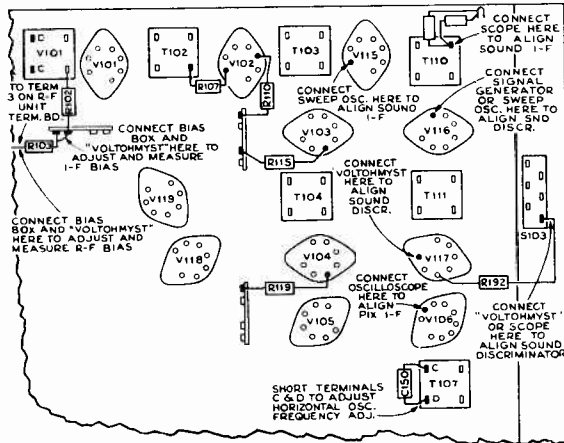 V101
C
V101
T102
V102
T103
V115
T110
CONNECT
SCOPE HERE
TO ALIGN
SOUND I-F
TO TERM
3 ON R-F
UNIT
TERM. BD.
R102
R107
R110
CONNECT
SWEEP OSC. HERE TO
ALIGN SOUND
I-F
CONNECT
SIGNAL
GENERATOR
OR SWEEP
OSC. HERE
TO ALIGN SND
DISCR.
R103
CONNECT BIAS
BOX AND
"VOLTOHMYST" HERE TO
ADJUST AND MEASURE
I-F BIAS
V103
V116
R115
CONNECT
VOLTOHMYST
HERE TO
ALIGN
SOUND
DISCR.
V119
T104
T111
S103
CONNECT BIAS
BOX AND "VOLTOHMYST"
HERE TO ADJUST AND
MEASURE R-F BIAS
V118
V104
V117
R119
R192
CONNECT
OSCILLOSCOPE
HERE TO
ALIGN
PIX I-F
V105
V106
CONNECT
"VOLTOHMYST"
OR SCOPE
HERE TO
ALIGN SOUND
DISCRIMINATOR
SHORT TERMINALS
C & D TO ADJUST
HORIZONTAL OSC.
FREQUENCY ADJ.
C150
C
T107
D